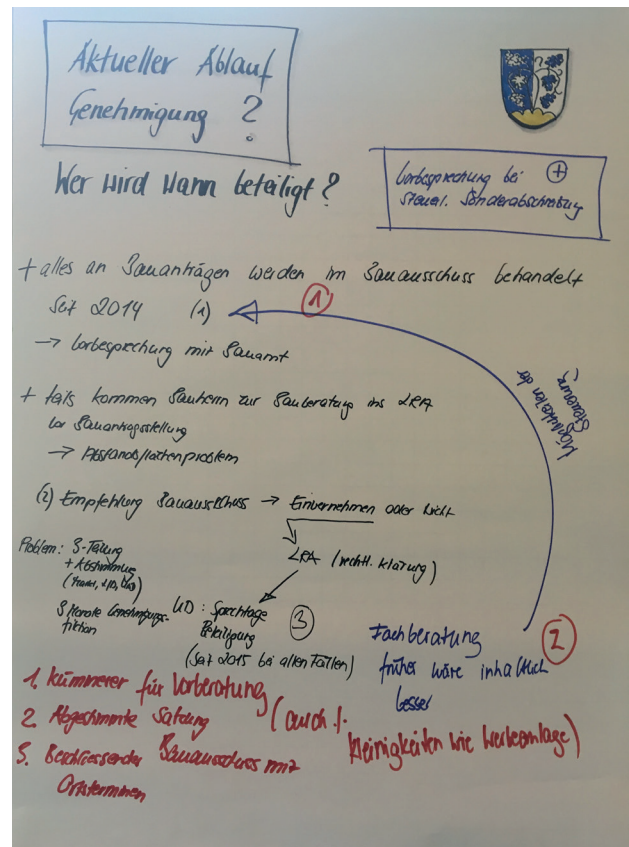 Aktueller Ablauf
Genehmigung ?
Wer wird wann beteiligt ?
Vorbesprechung bei +
steuerl. Sonderabschreibung
+ alles an Bauanträgen werden im Bauausschuss behandelt
seit 2014 (1)
1
→ Vorbesprechung mit Bauamt
Möglichkeiten der
Steuerung
+ teils kommen Bauherrn zur Bauberatung ins LRA
vor Bauantragsstellung
→ Abstandsflächenproblem
(2) Empfehlung Bauausschuss → Einvernehmen oder nicht
LRA (rechtl. Klärung)
Problem: 3-Teilung
+ Abstimmung
3 Monate Genehmigungs-
fiktion
UD : Sprechtage
Beteiligung
(seit 2015 bei allen Fällen)
3
Fachberatung
früher wäre inhaltlich
besser
2
1. Kümmerer für Vorberatung
2. Abgestimmte Satzung
(auch f.
Kleinigkeiten wie Werbeanlage)
3. Beschliessender Bauausschuss mit
Ortsterminen